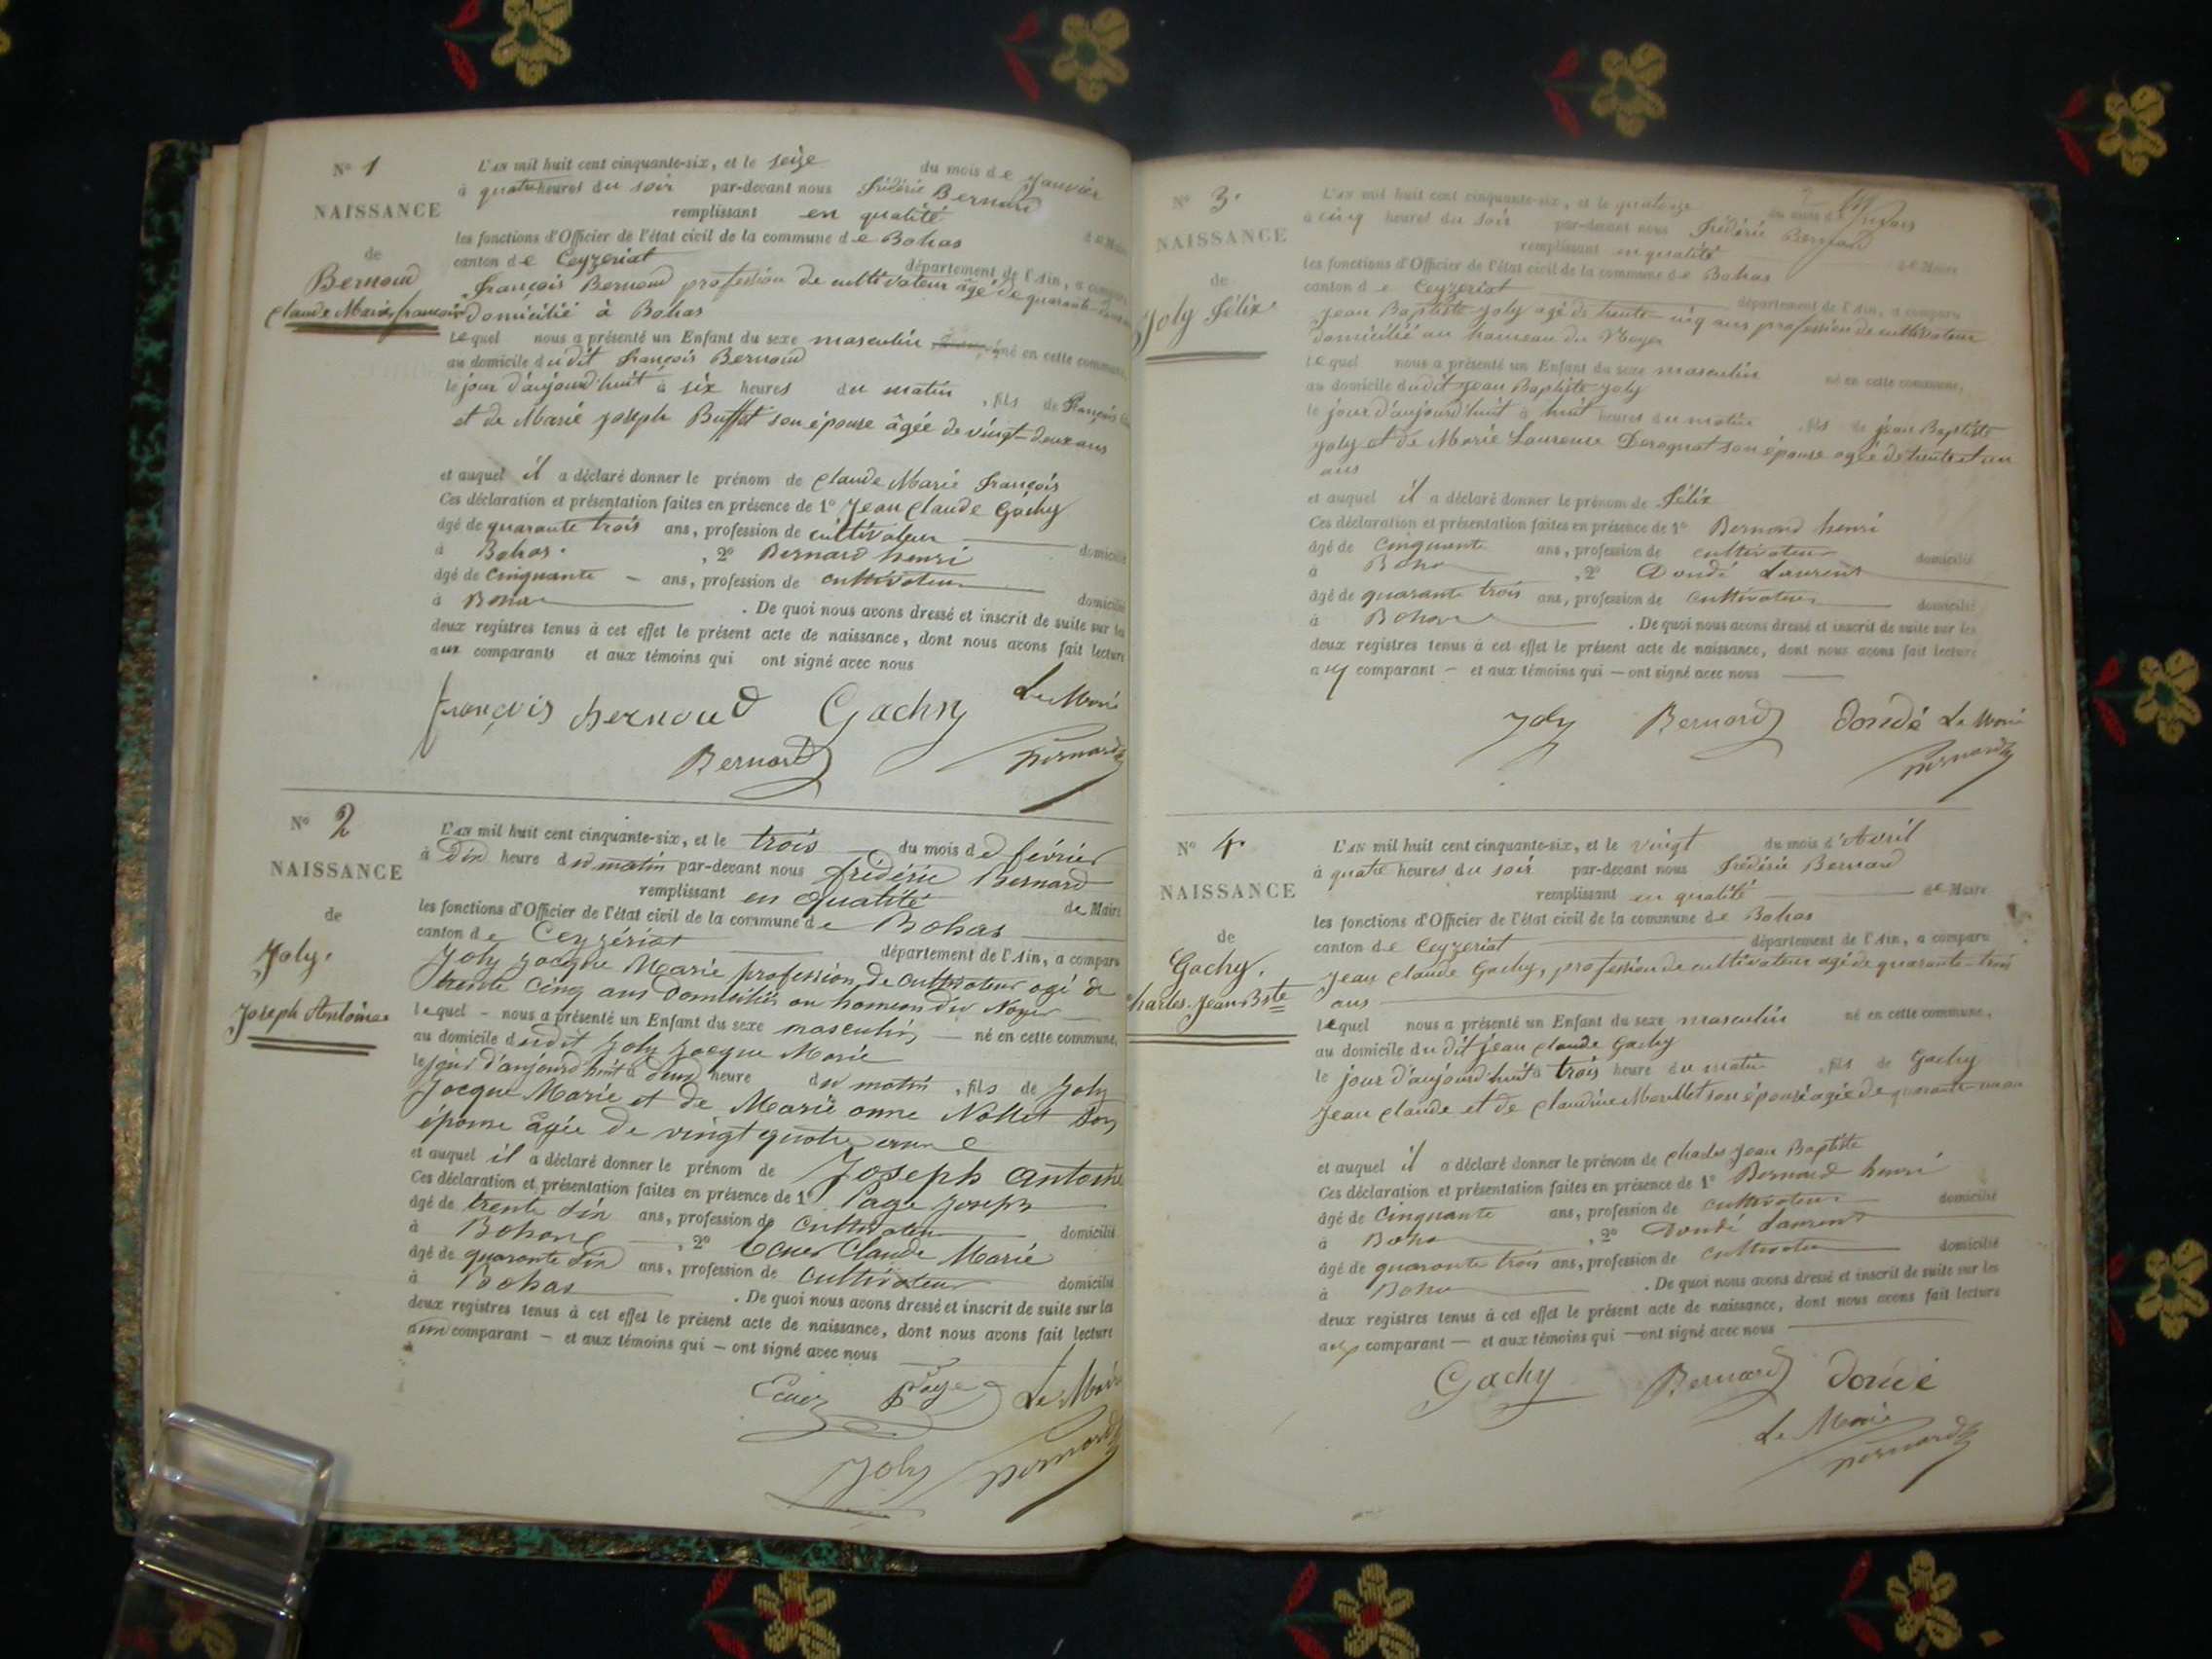 N° 1
NAISSANCE
de
Bernoud
Claude Marie françois
L'AN mil huit cent cinquante-six, et le seize du mois de Janvier
à quatre heures du soir par-devant nous frédéric Bernard
remplissant en qualité de Maire
les fonctions d'Officier de l'état civil de la commune de Bohas
canton de Ceyzeriat département de l'Ain, a comparu
françois Bernoud profession de cultivateur âgé de quarante
domicilié à Bohas
Lequel nous a présenté un Enfant du sexe masculin né en cette commune,
au domicile dudit françois Bernoud
le jour d'aujourd'huit à six heures du matin , fils de François
et de Marie joseph Buffet son épouse âgée de vingt-deux ans
et auquel il a déclaré donner le prénom de Claude Marie françois
Ces déclaration et présentation faites en présence de 1° Jean Claude Gachy
âgé de quarante trois ans, profession de cultivateur domicilié
à Bohas. , 2° Bernard henri
âgé de Cinquante - ans, profession de cultivateur domicilié
à Bohas . De quoi nous avons dressé et inscrit de suite sur les
deux registres tenus à cet effet le présent acte de naissance, dont nous avons fait lecture
aux comparants et aux témoins qui ont signé avec nous
françois bernoud Gachy Le Maire
Bernard Bernard
N° 2
NAISSANCE
de
Joly.
Joseph Antoine
L'AN mil huit cent cinquante-six, et le trois du mois de février
à Dix heure du matin par-devant nous frédéric Bernard
remplissant en qualité de Maire
les fonctions d'Officier de l'état civil de la commune de Bohas
canton de Ceyzériat département de l'Ain, a comparu
Joly Jacque Marie profession de cultivateur agé de
trente Cinq ans domicilié au hameau du Noyer
lequel - nous a présenté un Enfant du sexe masculin né en cette commune,
au domicile dudit Joly Jacque Marie
le jour d'aujourd'huit à deux heure du matin , fils de Joly
Jacque Marie et de Marie anne Nollet son
épouse âgée de vingt quatre
et auquel il a déclaré donner le prénom de Joseph antoine
Ces déclaration et présentation faites en présence de 1° Page Joseph
âgé de trente six ans, profession de Cultivateur domicilié
à Bohas , 2° Ecuer Claude Marie
âgé de quarante six ans, profession de Cultivateur domicilié
à Bohas . De quoi nous avons dressé et inscrit de suite sur les
deux registres tenus à cet effet le présent acte de naissance, dont nous avons fait lecture
comparant - et aux témoins qui - ont signé avec nous
Ecuer Page Le Maire
Joly Bernard
N° 3.
NAISSANCE
de
Joly félix
L'AN mil huit cent cinquante-six, et le quatorze du mois de
à cinq heures du soir par-devant nous frédéric Bernard
remplissant en qualité de Maire
les fonctions d'Officier de l'état civil de la commune de Bohas
canton de Ceyzeriat département de l'Ain, a comparu
Jean Baptiste Joly agé de trente-cinq ans profession de cultivateur
domicilié au hameau du Noyer
Lequel nous a présenté un Enfant du sexe masculin né en cette commune,
au domicile dudit Jean Baptiste Joly
le jour d'aujourd'huit à huit heures du matin , fils de jean Baptiste
Joly et de Marie Laurence Derognat son épouse agée de trente et un
ans
et auquel il a déclaré donner le prénom de félix
Ces déclaration et présentation faites en présence de 1° Bernard henri
âgé de Cinquante ans, profession de cultivateur domicilié
à Bohas , 2° Doudé Laurent
âgé de quarante trois ans, profession de Cultivateur domicilié
à Bohas . De quoi nous avons dressé et inscrit de suite sur les
deux registres tenus à cet effet le présent acte de naissance, dont nous avons fait lecture
comparant - et aux témoins qui - ont signé avec nous
Joly Bernard doudé Le Maire
Bernard
N° 4.
NAISSANCE
de
Gachy.
Charles Jean Bste
L'AN mil huit cent cinquante-six, et le vingt du mois d'Avril
à quatre heures du soir par-devant nous frédéric Bernard
remplissant en qualité de Maire
les fonctions d'Officier de l'état civil de la commune de Bohas
canton de Ceyzeriat département de l'Ain, a comparu
Jean claude Gachy, profession de cultivateur agé de quarante-trois
ans
lequel nous a présenté un Enfant du sexe masculin né en cette commune,
au domicile du dit jean claude Gachy
le jour d'aujourd'huit à trois heure du matin , fils de Gachy
Jean claude et de claudine son épouse agée de quarante-un an
et auquel il a déclaré donner le prénom de charles Jean Baptiste
Ces déclaration et présentation faites en présence de 1° Bernard henri
âgé de Cinquante ans, profession de cultivateur domicilié
à Bohas , 2° Doudé Laurent
âgé de quarante trois ans, profession de Cultivateur domicilié
à Bohas . De quoi nous avons dressé et inscrit de suite sur les
deux registres tenus à cet effet le présent acte de naissance, dont nous avons fait lecture
comparant - et aux témoins qui - ont signé avec nous
Gachy Bernard doudé
Le Maire
Bernard